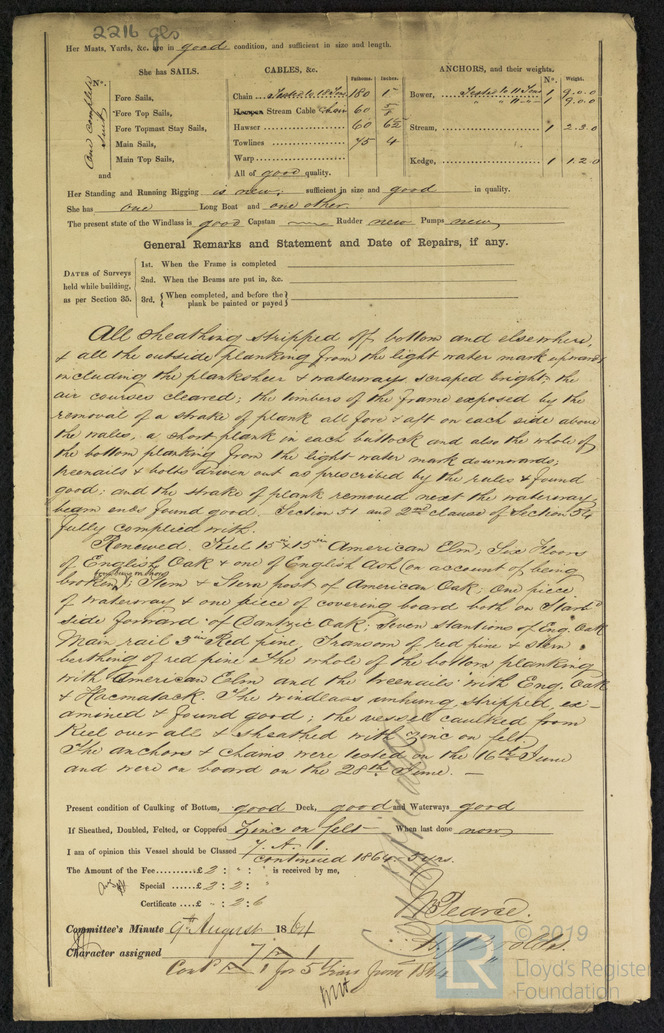 2216 gls
Her Masts, Yards, &c. are in good condition, and sufficient in size and length.
She has SAILS.
One complete Suit
No.
Fore Sails,
Fore Top Sails,
Fore Topmast Stay Sails,
Main Sails,
Main Top Sails,
and
CABLES, &c. Fathoms. Inches.
Chain Tested to 11 Tons 180 1"
Hempen Stream Cable Chain 60 5/8
Hawser 60 6½
Towlines 75 4
Warp
All of good quality.
ANCHORS, and their weights. No. Weight.
Bower, Tested to 11 Tons 1 9.0.0
" 11 " 1 9.0.0
Stream, 1 2.3.0
Kedge, 1 1.2.0
Her Standing and Running Rigging is new, sufficient in size and good in quality.
She has one Long Boat and one other.
The present state of the Windlass is good Capstan Rudder new Pumps new
General Remarks and Statement and Date of Repairs, if any.
DATES of Surveys held while building, as per Section 35.
1st. When the Frame is completed
2nd. When the Beams are put in, &c.
3rd. { When completed, and before the plank be painted or payed }
All sheathing stripped off bottom and elsewhere,
& all the outside planking from the light water mark upwards
including the planksheer & waterways, scraped bright; the
air courses cleared; the timbers of the frame exposed by the
removal of a strake of plank all fore & aft on each side above
the wales, a short plank in each buttock and also the whole of
the bottom planking from the light water mark downwards;
treenails & bolts driven out as prescribed by the rules & found
good; and the strake of plank removed next the waterway
beam ends found good. Section 51 and 2nd clause of Section 54
fully complied with.
Renewed. Keel 15 in x 15 in American Elm; Six Floors
of English Oak & one of English Ash (on account of being
broken); Stem & Stern post of American Oak; One piece
of waterway & one piece of covering board both on Starbd
side forward of Dantzic Oak; seven stantions of Eng. Oak
Main rail 3 in Red pine, Transom of red pine & stern
berthing of red pine. The whole of the bottom planking
with American Elm and the treenails with Eng. Oak
& Hacmatack. The windlass unhung, stripped, ex-
amined & found good; the vessel caulked from
Keel over all & sheathed with zinc on felt
The anchors & chains were tested on the 16th June
and were on board on the 28th June. —
Present condition of Caulking of Bottom, good Deck, good and Waterways good
If Sheathed, Doubled, Felted, or Coppered Zinc on felt When last done now
I am of opinion this Vessel should be Classed 7. A. 1.
continued 1864 - 5 yrs.
The Amount of the Fee......£ 2 : " : " is received by me,
Special ......£ 2 : 2 :
Certificate ...£ " : 2 : 6
Pearce.
Committee's Minute 9th August 1864
Character assigned 7 A 1
Contd A 1 for 5 Years from 1864
© 2019
LR
Lloyd's Register
Foundation